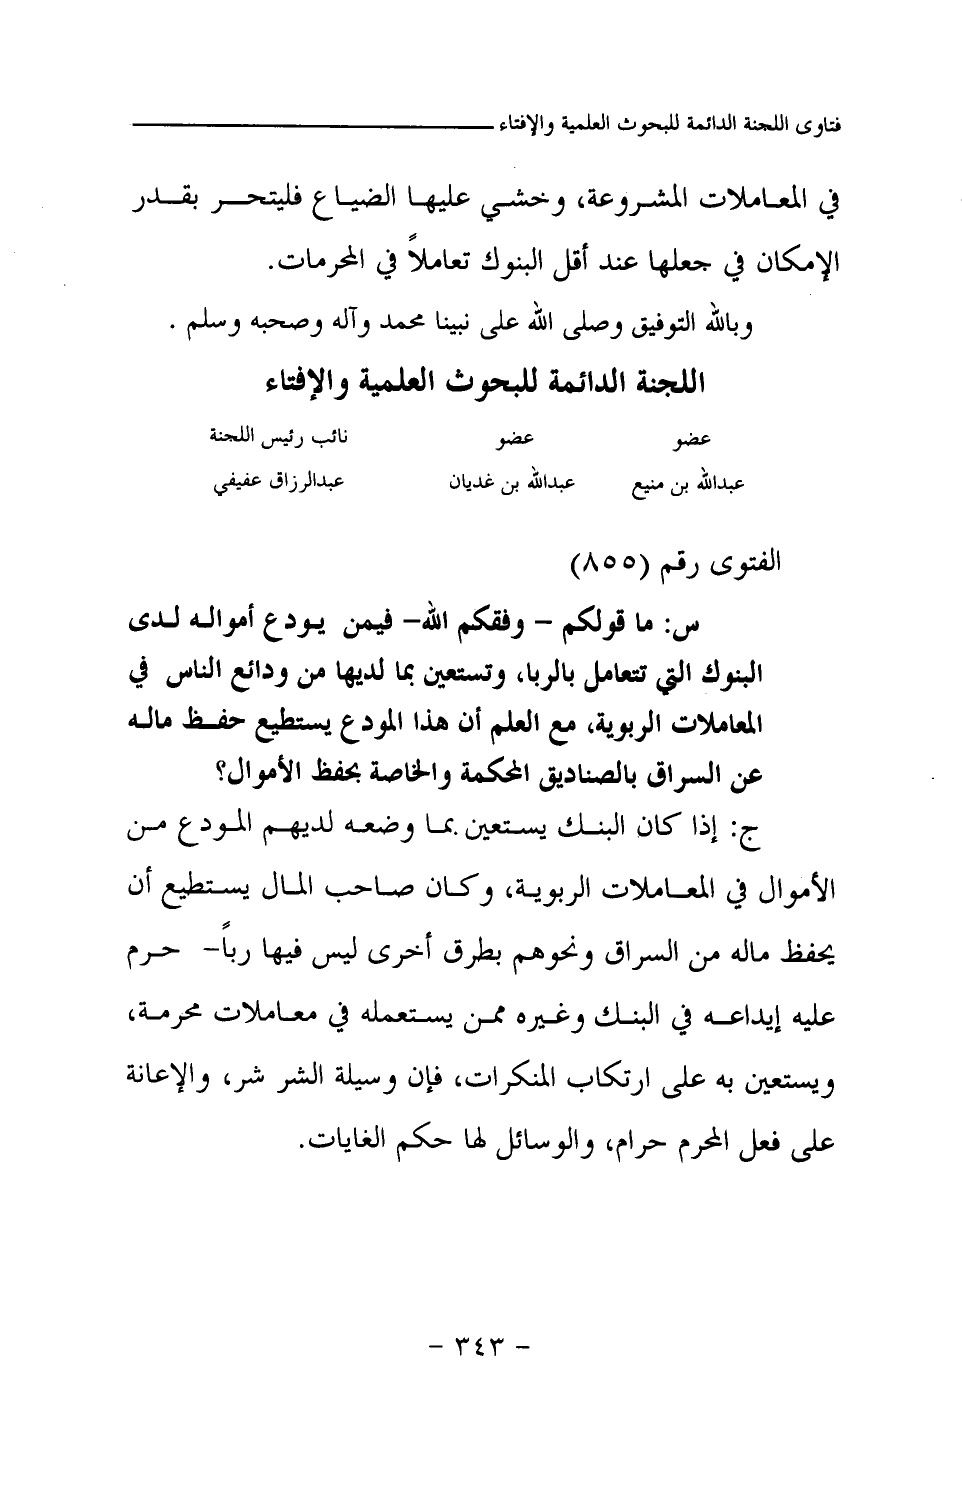 فتاوى اللجنة الدائمة للبحوث العلمية والإفتاء
في المعاملات المشروعة، وخشي عليها الضياع فليتحر بقدر
الإمكان في جعلها عند أقل البنوك تعاملاً في المحرمات.
وبالله التوفيق وصلى الله على نبينا محمد وآله وصحبه وسلم .
اللجنة الدائمة للبحوث العلمية والإفتاء
عضو عضو نائب رئيس اللجنة
عبدالله بن منيع عبدالله بن غديان عبدالرزاق عفيفي
الفتوى رقم (٨٥٥)
س: ما قولكم – وفقكم الله– فيمن يودع أمواله لدى
البنوك التي تتعامل بالربا، وتستعين بما لديها من ودائع الناس في
المعاملات الربوية، مع العلم أن هذا المودع يستطيع حفظ ماله
عن السراق بالصناديق المحكمة والخاصة بحفظ الأموال؟
ج: إذا كان البنك يستعين بما وضعه لديهم المودع من
الأموال في المعاملات الربوية، وكان صاحب المال يستطيع أن
يحفظ ماله من السراق ونحوهم بطرق أخرى ليس فيها رباً– حرم
عليه إيداعه في البنك وغيره ممن يستعمله في معاملات محرمة،
ويستعين به على ارتكاب المنكرات، فإن وسيلة الشر شر، والإعانة
على فعل المحرم حرام، والوسائل لها حكم الغايات.
– ٣٤٣ –